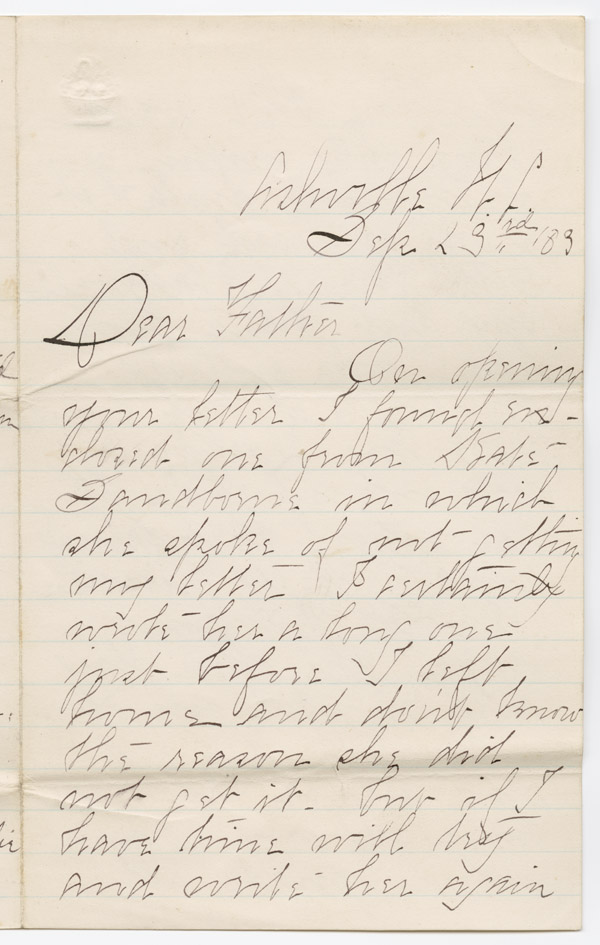 Ashville N.C.
Sep 23rd 183
Dear Father
On opening
your letter I found en-
closed one from Kate
Sandborne in which
she spoke of not getting
my letter I certainly
wrote her a long one
just before I left
home and don't know
the reason she did
not get it. but if I
have time will try
and write her again